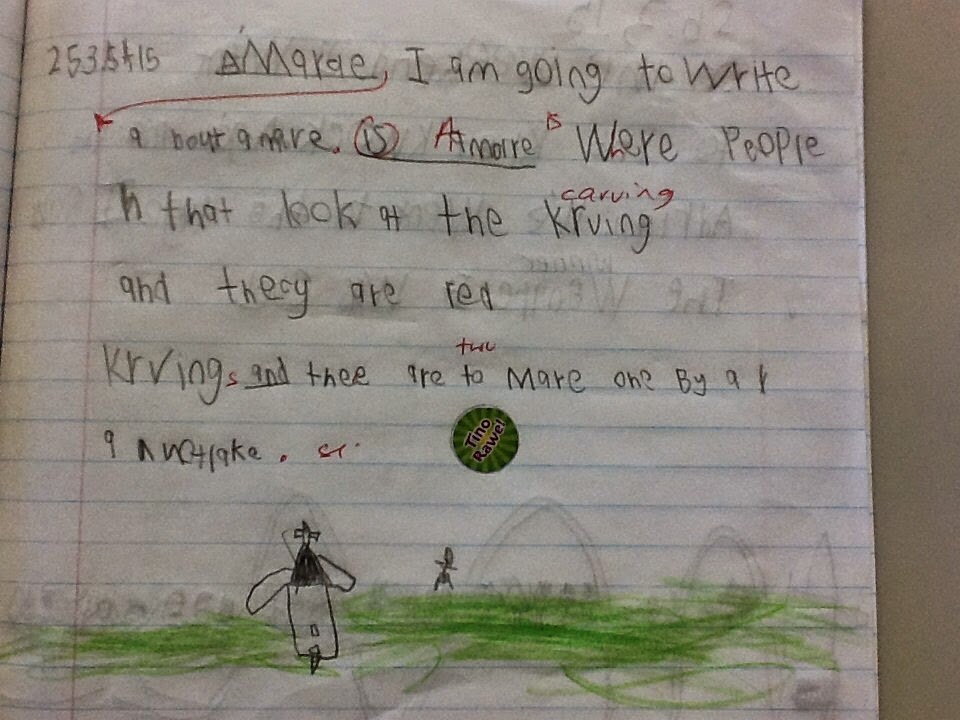 AMarae, I am going to Write
a bout a mare. (is) A marre is Were People
that look at the Krving carving
and they are red
Krvings and thee are to two Mare one By a
a
Tino Rawe!